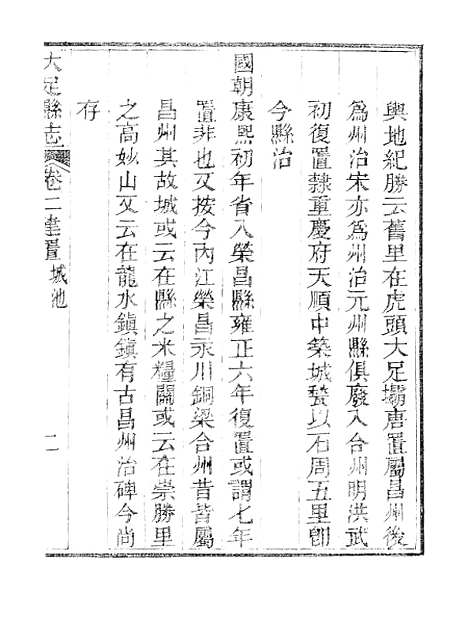 輿地紀勝云舊里在虎頭大足壩唐置屬昌州後
為州治宋亦為州治元州縣俱廢入合州明洪武
初復置隸重慶府天順中築城甃以石周五里卽
今縣治
國朝康熙初年省入榮昌縣雍正六年復置或謂七年
置非也又按今內江榮昌永川銅梁合州昔皆屬
昌州其故城或云在縣之米糧關或云在崇勝里
之高妙山又云在龍水鎮鎮有古昌州治碑今尚
存
大足縣志 卷二建置 城池 二